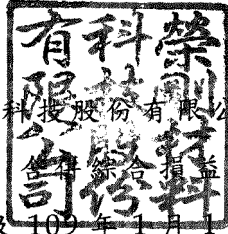 榮剛材料
科技股份
有限公司
科技股份有限公
合併綜合損益
109 年 1 月 1